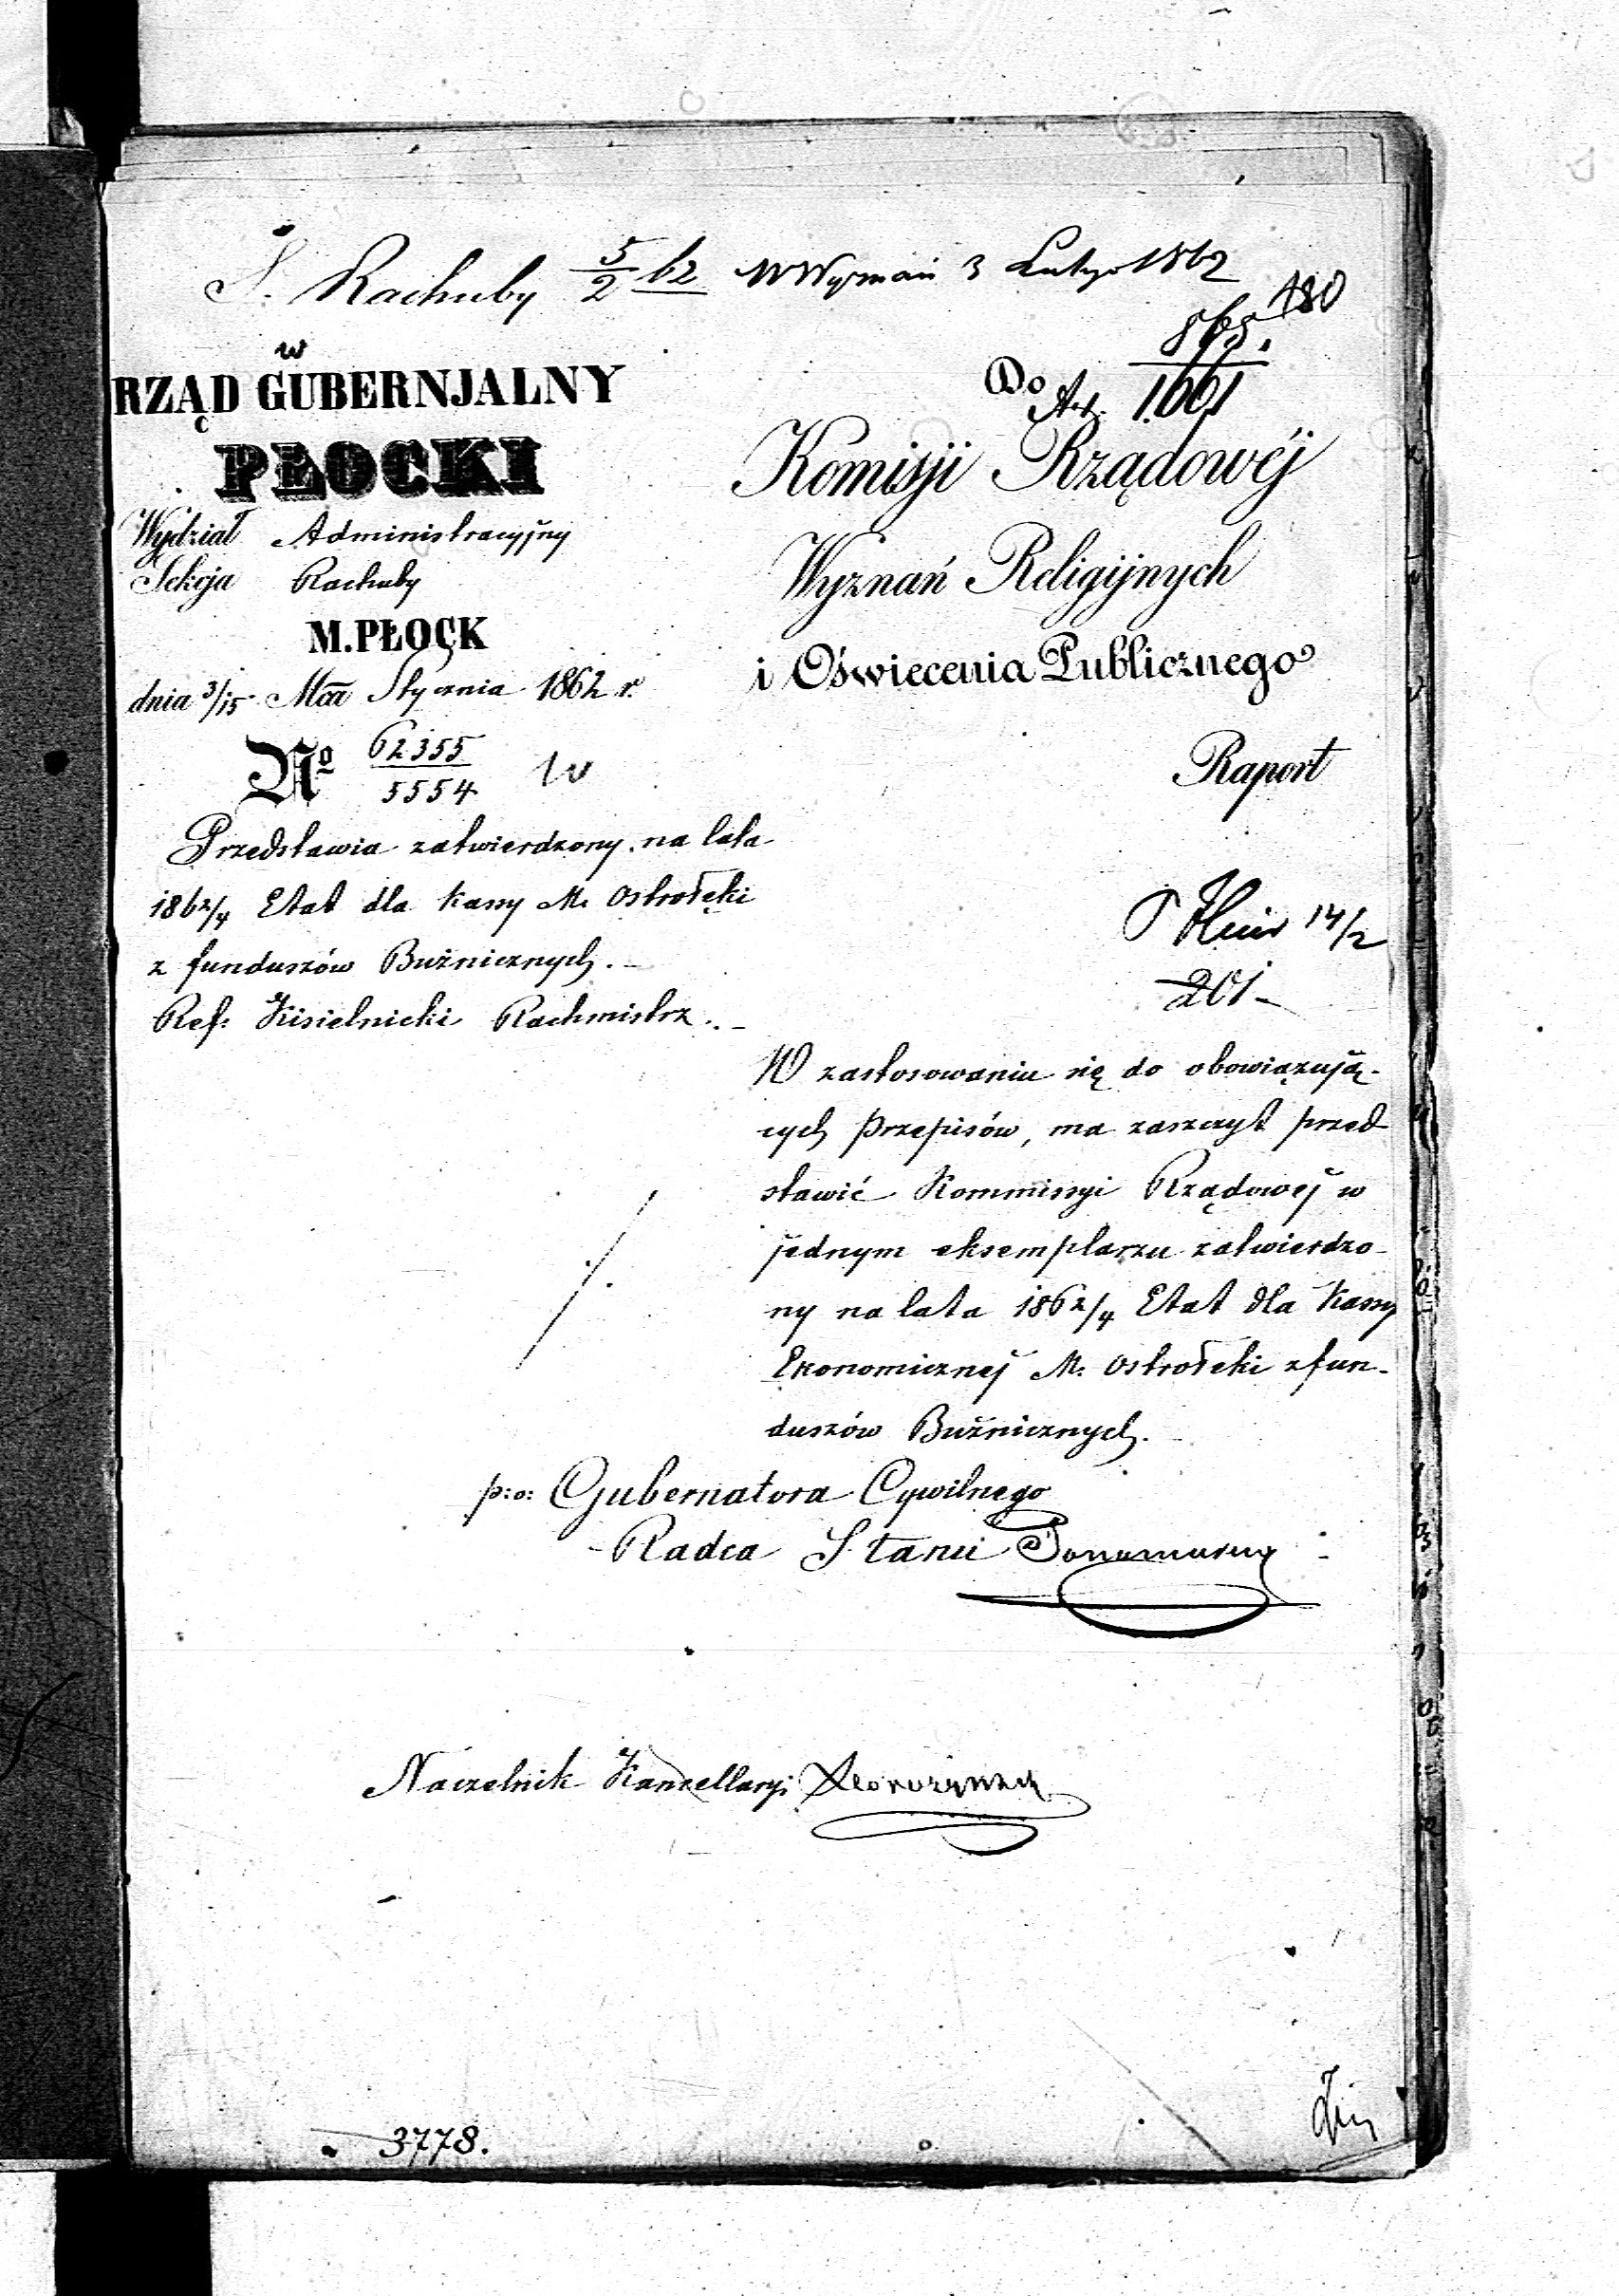 S. Rachuby 5/2 62 W Wyznań 3 Lutego 1862
180
865.
1061
w
RZĄD GUBERNJALNY
PŁOCKI
Wydział Administracyjny
Sekcja Rachuby
M. PŁOCK
dnia 3/15 Mca Stycznia 1862 r.
No 62355/5554
Przedstawia zatwierdzony na lata
1862/4 Etat dla kassy M. Ostrołęki
z funduszów Bużnicznych.
Ref: Kisielnicki Rachmistrz.
Do
Komisji Rządowéj
Wyznań Religijnych
i Oświecenia Publicznego
Raport
14/2
201
W zastosowaniu się do obowiązują-
cych przepisów, ma zaszczyt przed
stawić Kommissyi Rządowej w
jednym eksemplarzu zatwierdzo-
ny na lata 1862/4 Etat dla Kassy
Ekonomicznej M. Ostrołęki z fun-
duszów Bużnicznych.
p:o: Gubernatora Cywilnego
Radca Stanu
Naczelnik Kancellaryi
3778.